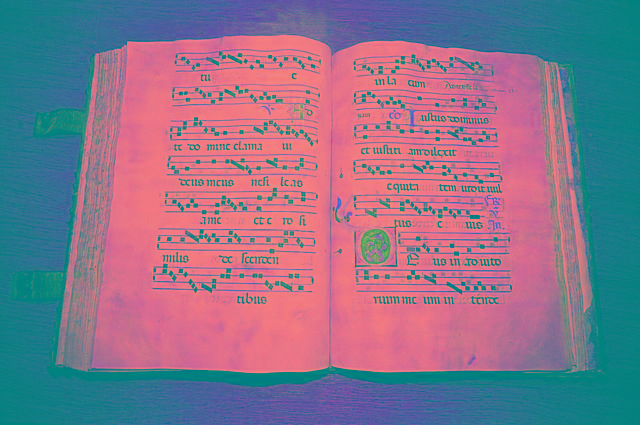 tu e
te do mine clama ui
deus meus ne si le as
a me et e ro si
milis de scenden
tibus
in la cum
Iustus dominus
et iusticiam dilexit
equita tem uidit uul
tus e ius
Deus in adiuto
rium me um in tende